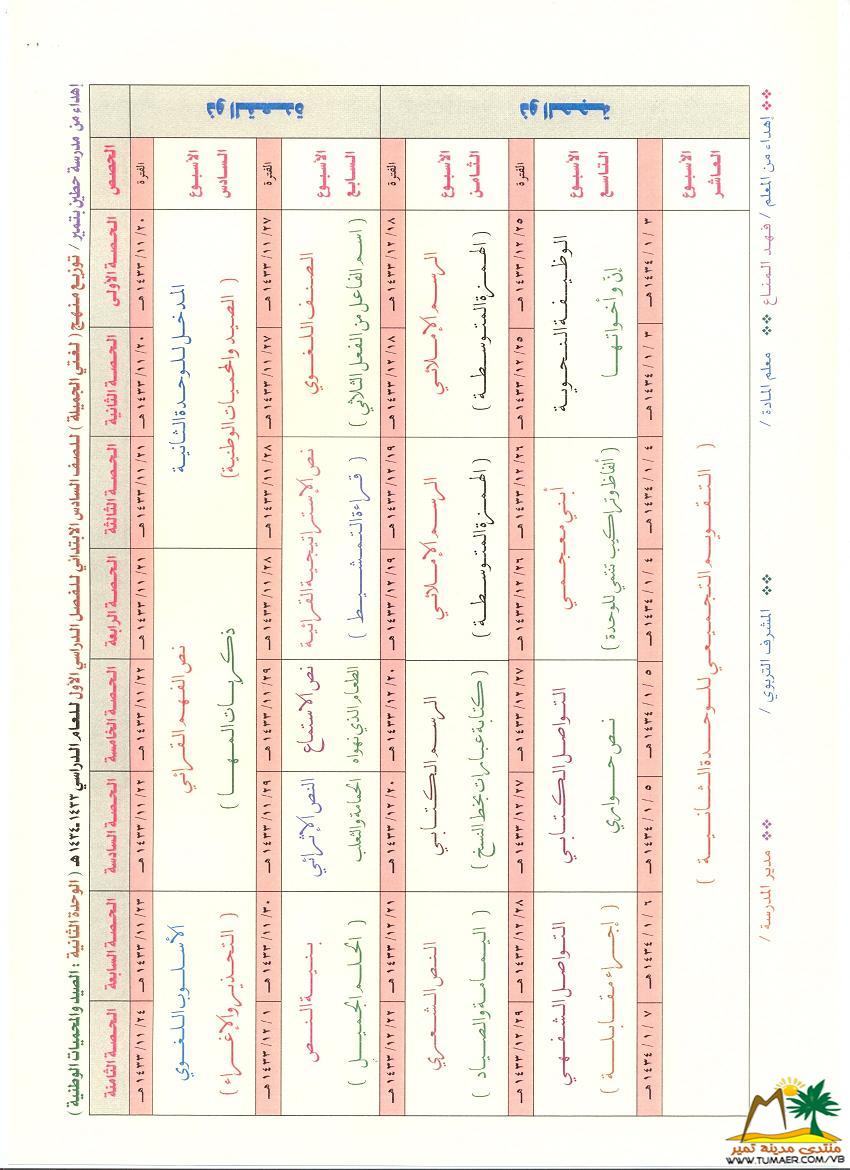 إهداء من مدرسة حطين بتمير / توزيع منهج ( لغتي الجميلة ) للصف السادس الابتدائي للفصل الدراسي الأول للعام الدراسي ١٤٣٣-١٤٣٤ هـ ( الوحدة الثانية : الصيد والمحميات الوطنية )
الحصص الحصة الأولى الحصة الثانية الحصة الثالثة الحصة الرابعة الحصة الخامسة الحصة السادسة الحصة السابعة الحصة الثامنة
ذو القعدة
الفترة ١٤٣٣/١١/٢٠ هـ ١٤٣٣/١١/٢٠ هـ ١٤٣٣/١١/٢١ هـ ١٤٣٣/١١/٢١ هـ ١٤٣٣/١١/٢٢ هـ ١٤٣٣/١١/٢٢ هـ ١٤٣٣/١١/٢٣ هـ ١٤٣٣/١١/٢٤ هـ
الاسبوع المدخل للوحدة الثانية نص الفهم القرائي الأسلوب اللغوي
السادس (الصيد والمحميات الوطنية) ( ذكريات المها ) ( التحذير والإغراء )
الفترة ١٤٣٣/١١/٢٧ هـ ١٤٣٣/١١/٢٧ هـ ١٤٣٣/١١/٢٨ هـ ١٤٣٣/١١/٢٨ هـ ١٤٣٣/١١/٢٩ هـ ١٤٣٣/١١/٢٩ هـ ١٤٣٣/١١/٣٠ هـ ١٤٣٣/١٢/١ هـ
الاسبوع الصنف اللغوي نص الإستراتيجية القرائية نص الاستماع النص الإثرائي بنية النص
السابع ( اسم الفاعل من الفعل الثلاثي ) ( قراءة التمشيط ) الطعام الذي نهواه الحمامة والثعلب ( الحلم الجميل )
ذو الحجة
الفترة ١٤٣٣/١٢/١٨ هـ ١٤٣٣/١٢/١٨ هـ ١٤٣٣/١٢/١٩ هـ ١٤٣٣/١٢/١٩ هـ ١٤٣٣/١٢/٢٠ هـ ١٤٣٣/١٢/٢٠ هـ ١٤٣٣/١٢/٢١ هـ ١٤٣٣/١٢/٢٢ هـ
الاسبوع الرسم الإملائي الرسم الإملائي الرسم الكتابي النص الشعري
الثامن ( الهمزة المتوسطة ) ( الهمزة المتوسطة ) ( كتابة عبارات بخط النسخ ) ( اليمامة والصياد )
الفترة ١٤٣٣/١٢/٢٥ هـ ١٤٣٣/١٢/٢٥ هـ ١٤٣٣/١٢/٢٦ هـ ١٤٣٣/١٢/٢٦ هـ ١٤٣٣/١٢/٢٧ هـ ١٤٣٣/١٢/٢٧ هـ ١٤٣٣/١٢/٢٨ هـ ١٤٣٣/١٢/٢٩ هـ
الاسبوع الوظيفة النحوية أبني معجمي التواصل الكتابي التواصل الشفهي
التاسع إن وأخواتها ( ألفاظ وتراكيب تنتمي للوحدة ) نص حواري ( إجراء مقابلة )
١٤٣٤/١/٣ هـ ١٤٣٤/١/٣ هـ ١٤٣٤/١/٤ هـ ١٤٣٤/١/٤ هـ ١٤٣٤/١/٥ هـ ١٤٣٤/١/٥ هـ ١٤٣٤/١/٦ هـ ١٤٣٤/١/٧ هـ
الاسبوع
العاشر ( التقويم التجميعي للوحدة الثانية )
إهداء من المعلم / فهد المناع معلم المادة / المشرف التربوي / مدير المدرسة /
منتدى مدينة تمير
WWW.TUMAER.COM/VB